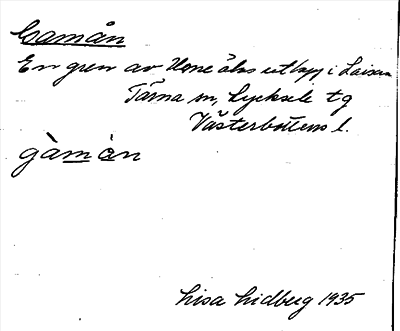 Gamån
En gren av Ume älvs utlopp i Laisan
Tärna sn, Lycksele tg
Västerbottens l.
gàmån
Lisa Lidberg 1935